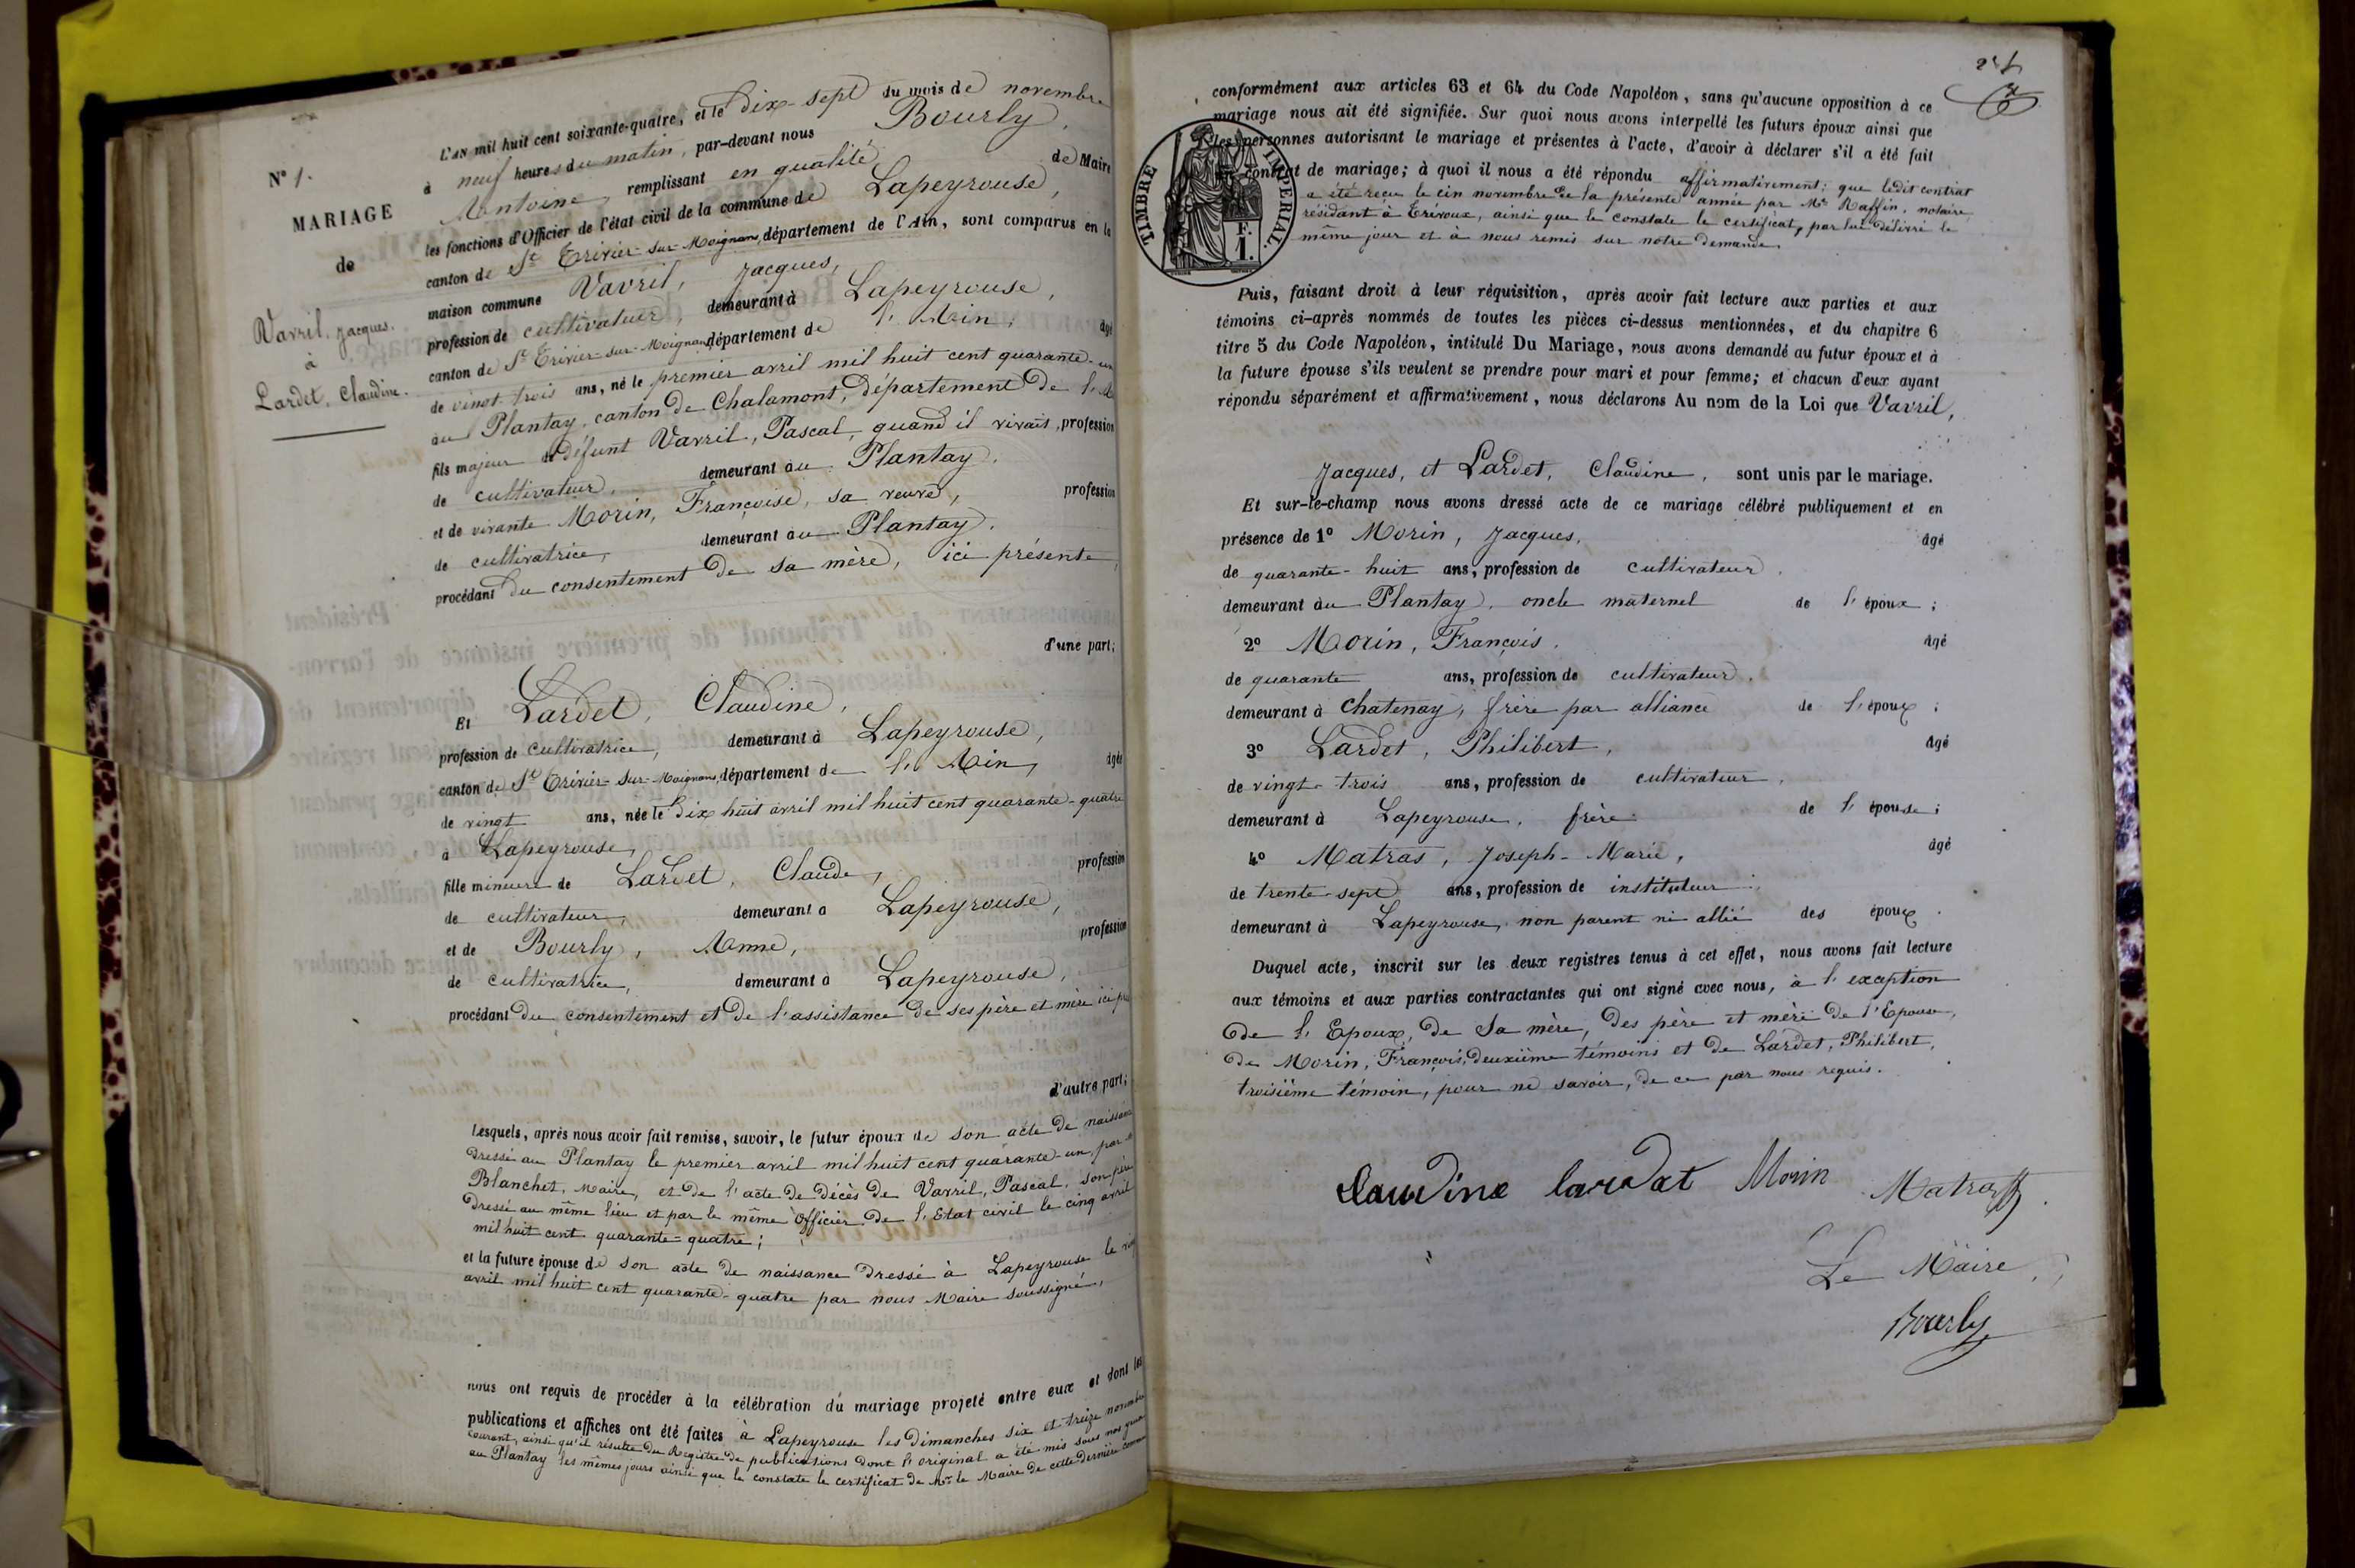 N° 1.
MARIAGE
de
Vavril, Jacques.
à
Lardet, Claudine.
L'AN mil huit cent soixante-quatre, et le dix-sept du mois de novembre
à neuf heures du matin, par-devant nous Bourly,
Antoine, remplissant en qualité de Maire
les fonctions d'Officier de l'état civil de la commune de Lapeyrouse,
canton de St Trivier-sur-Moignans, département de l'Ain, sont comparus en la
maison commune Vavril, Jacques,
profession de cultivateur, demeurant à Lapeyrouse,
canton de St Trivier-sur-Moignans, département de l'Ain, âgé
de vingt-trois ans, né le premier avril mil huit cent quarante-un
au Plantay, canton de Chalamont, département de l'A
fils majeur de défunt Vavril, Pascal, quand il vivait, profession
de cultivateur, demeurant au Plantay,
et de vivante Morin, Françoise, sa veuve, profession
de cultivatrice, demeurant au Plantay,
procédant du consentement de sa mère, ici présente,
d'une part;
Et Lardet, Claudine,
profession de cultivatrice, demeurant à Lapeyrouse,
canton de St Trivier-sur-Moignans, département de l'Ain, âgée
de vingt ans, née le dix huit avril mil huit cent quarante-quatre
à Lapeyrouse,
fille mineure de Lardet, Claude, profession
de cultivateur, demeurant à Lapeyrouse,
et de Bourly, Anne, profession
de cultivatrice, demeurant à Lapeyrouse,
procédant du consentement et de l'assistance de ses père et mère ici
d'autre part;
Lesquels, après nous avoir fait remise, savoir, le futur époux de son acte de naissance
dressé au Plantay le premier avril mil huit cent quarante-un, par
Blanchet, Maire, et de l'acte de décès de Vavril, Pascal, son père
dressé au même lieu et par le même Officier de l'Etat civil le cinq avril
mil huit cent quarante-quatre;
et la future épouse de son acte de naissance dressé à Lapeyrouse le
avril mil huit cent quarante-quatre par nous Maire soussigné,
nous ont requis de procéder à la célébration du mariage projeté entre eux et dont les
publications et affiches ont été faites à Lapeyrouse les dimanches six et treize novembre
courant, ainsi qu'il résulte du Registre de publications dont l'original a été mis sous nos
au Plantay les mêmes jours ainsi que le constate le certificat de Mr le Maire de cette dernière
conformément aux articles 63 et 64 du Code Napoléon, sans qu'aucune opposition à ce
mariage nous ait été signifiée. Sur quoi nous avons interpellé les futurs époux ainsi que
les personnes autorisant le mariage et présentes à l'acte, d'avoir à déclarer s'il a été fait
contrat de mariage; à quoi il nous a été répondu affirmativement; que ledit contrat
a été reçu le cin novembre de la présente année par Me Raffin, notaire,
résidant à Trévoux, ainsi que le constate le certificat, par lui délivré le
même jour et à nous remis sur notre demande.
TIMBRE IMPÉRIAL.
F.
1.
Puis, faisant droit à leur réquisition, après avoir fait lecture aux parties et aux
témoins ci-après nommés de toutes les pièces ci-dessus mentionnées, et du chapitre 6
titre 5 du Code Napoléon, intitulé Du Mariage, nous avons demandé au futur époux et à
la future épouse s'ils veulent se prendre pour mari et pour femme; et chacun d'eux ayant
répondu séparément et affirmativement, nous déclarons Au nom de la Loi que Vavril,
Jacques, et Lardet, Claudine, sont unis par le mariage.
Et sur-le-champ nous avons dressé acte de ce mariage célébré publiquement et en
présence de 1° Morin, Jacques, âgé
de quarante-huit ans, profession de cultivateur,
demeurant au Plantay, oncle maternel de l'époux;
2° Morin, François, âgé
de quarante ans, profession de cultivateur,
demeurant à Chatenay, frère par alliance de l'époux;
3° Lardet, Philibert, âgé
de vingt-trois ans, profession de cultivateur,
demeurant à Lapeyrouse, frère de l'épouse;
4° Matras, Joseph-Marie, âgé
de trente-sept ans, profession de instituteur
demeurant à Lapeyrouse, non parent ni allié des époux.
Duquel acte, inscrit sur les deux registres tenus à cet effet, nous avons fait lecture
aux témoins et aux parties contractantes qui ont signé avec nous, à l'exception
de l'Epoux, de sa mère, des père et mère de l'Epouse,
de Morin, François, deuxième témoins et de Lardet, Philibert,
troisième témoin, pour ne savoir, de ce par nous requis.
Claudine lardat Morin Matras
Le Maire,
Bourly